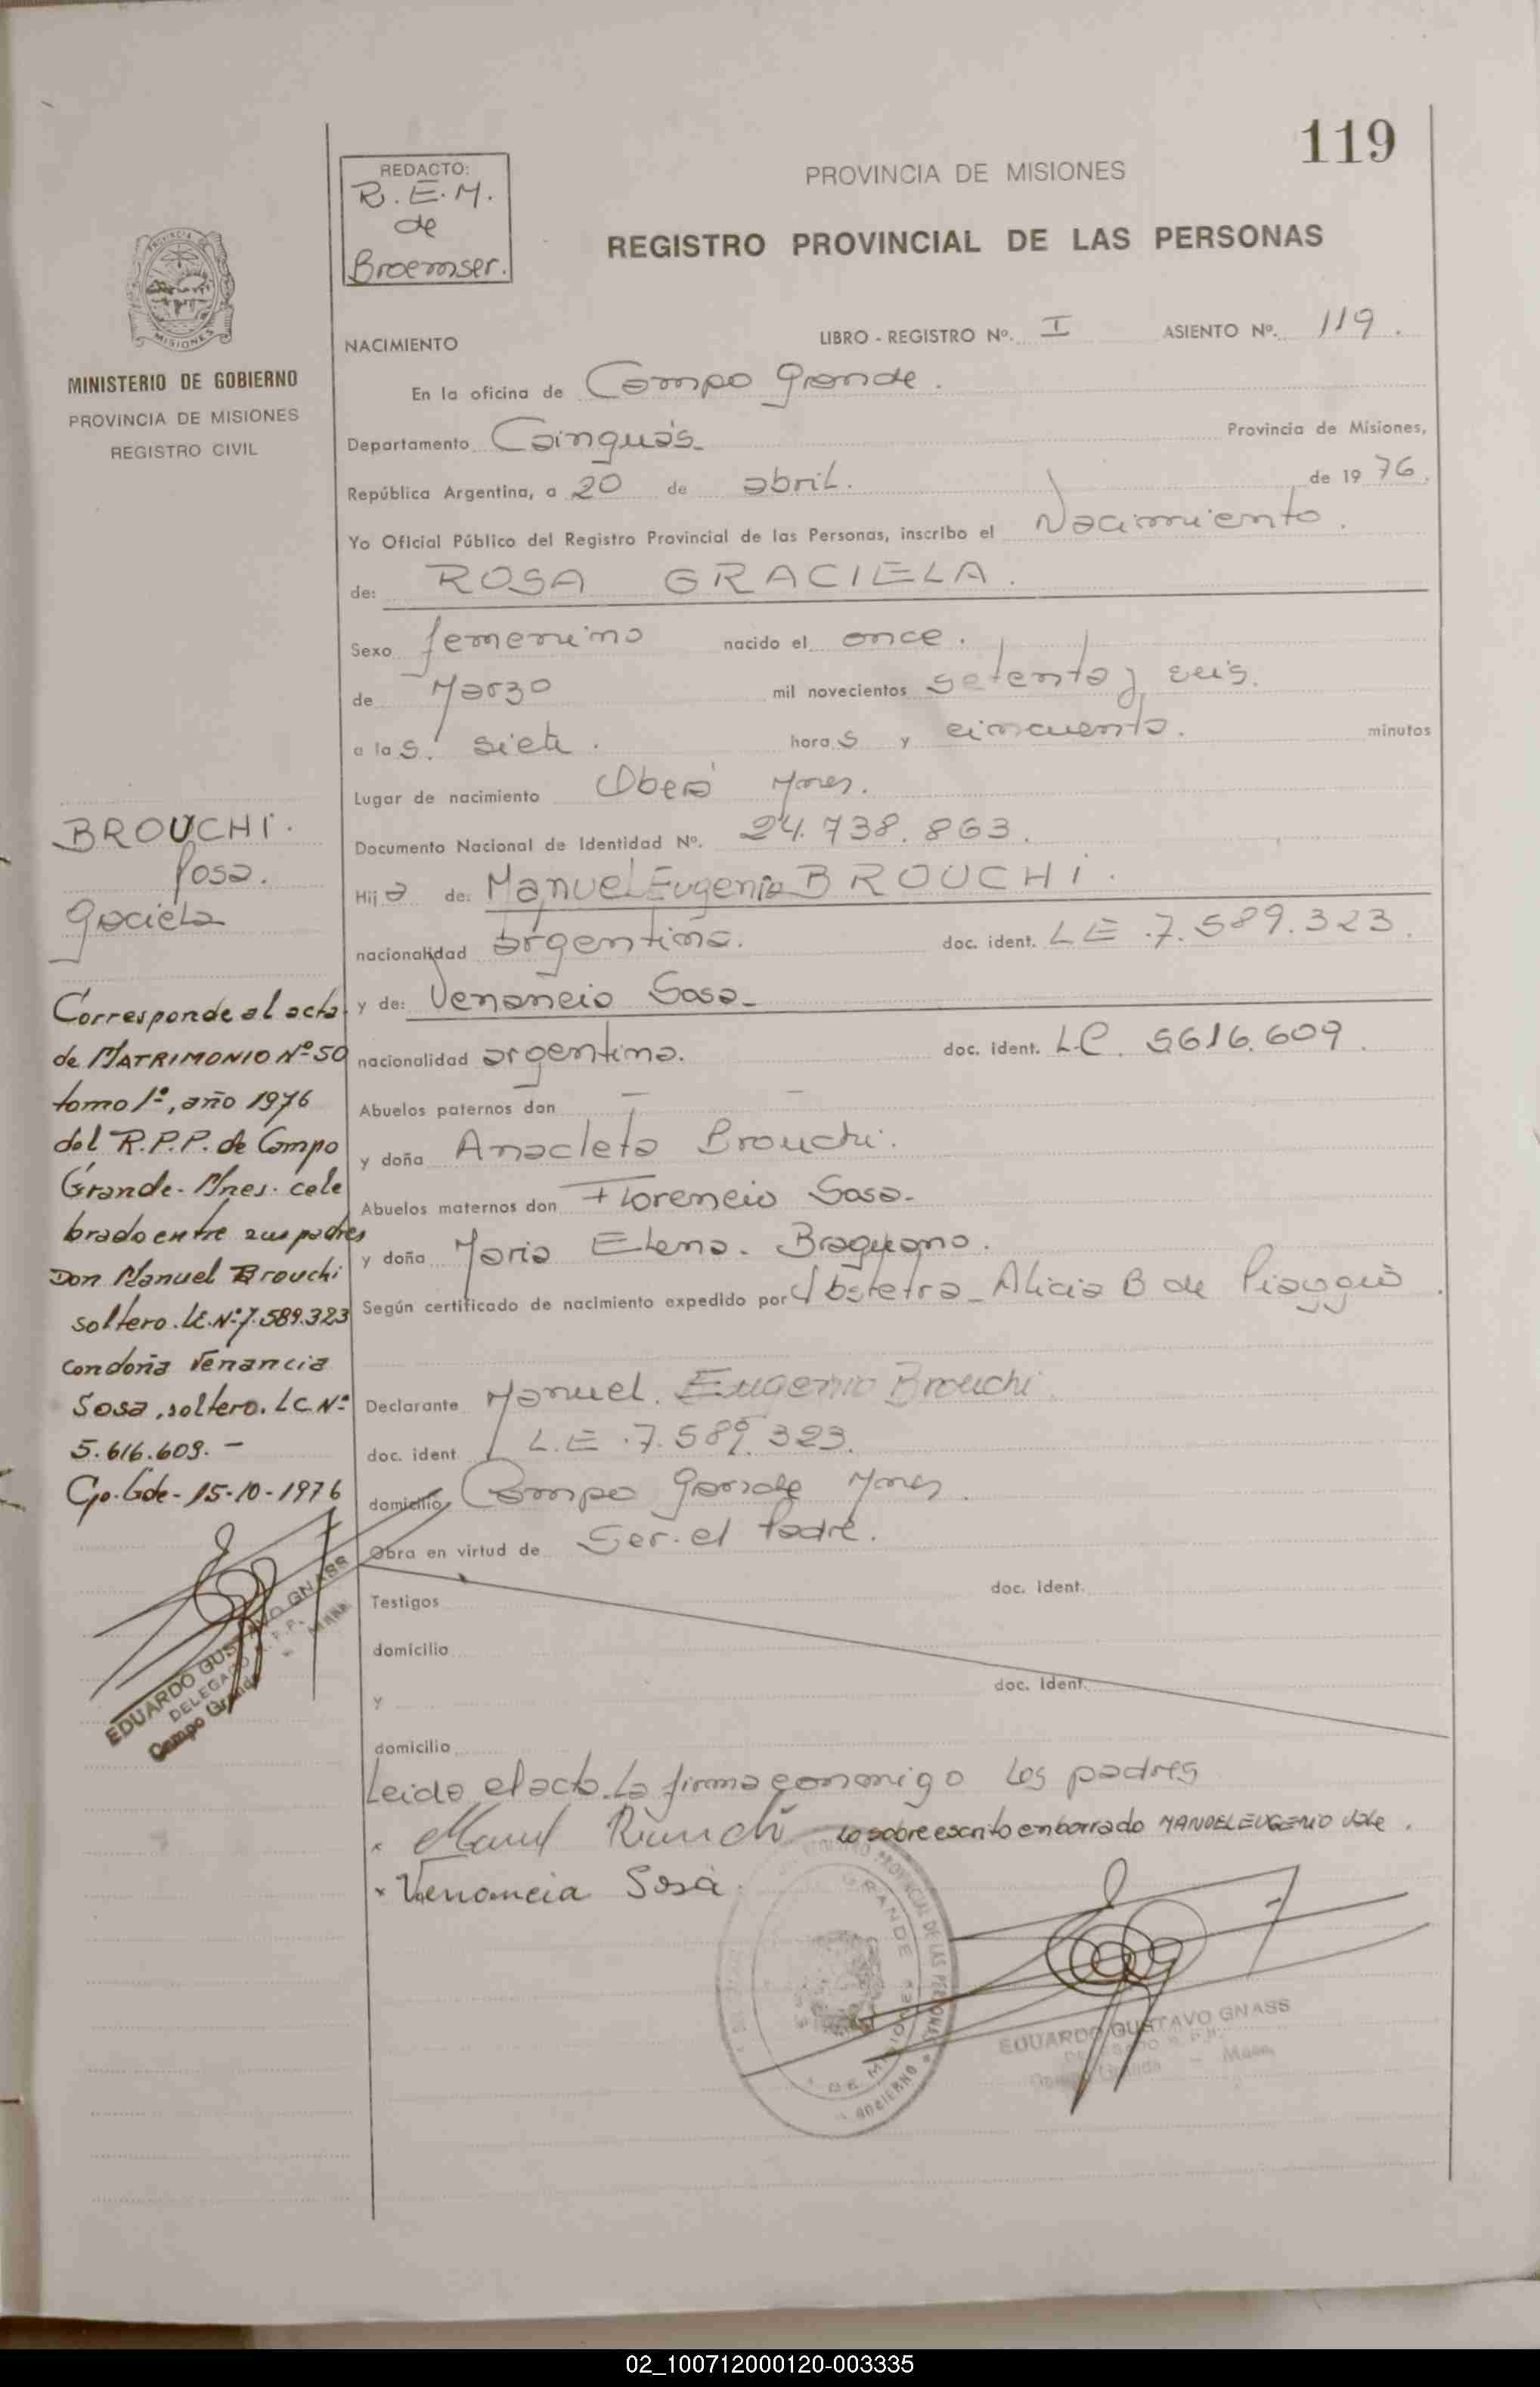 119
REDACTO:
R. E. M.
de
Broemser.
PROVINCIA DE MISIONES
REGISTRO PROVINCIAL DE LAS PERSONAS
PROVINCIA DE
MISIONES
MINISTERIO DE GOBIERNO
PROVINCIA DE MISIONES
REGISTRO CIVIL
NACIMIENTO LIBRO - REGISTRO Nº. I ASIENTO Nº. 119.
En la oficina de Campo Grande.
Departamento Cainguás Provincia de Misiones,
República Argentina, a 20 de abril. de 19 76.
Yo Oficial Público del Registro Provincial de las Personas, inscribo el Nacimiento.
de: ROSA GRACIELA.
Sexo femenino nacido el once.
de Marzo mil novecientos setenta y seis.
a las. siete. horas y cincuenta. minutos
Lugar de nacimiento Oberá Mnes.
Documento Nacional de Identidad Nº. 24.738.863.
Hija de: Manuel Eugenio BROUCHI.
nacionalidad argentina. doc. ident. LE.7.589.323.
y de: Venancia Sosa-
nacionalidad argentina. doc. ident. L.C. 5616.609.
Abuelos paternos don — —
y doña Anacleta Brouchi.
Abuelos maternos don Florencio Sosa-
y doña Maria Elena.
Según certificado de nacimiento expedido por Obstetra- Alicia B de Piaggio
Declarante Manuel. Eugenio Brouchi
doc. ident L.E.7.589.323.
domicilio Campo Grande Mnes.
Obra en virtud de Ser. el Padre.
Testigos doc. ident.
domicilio
y doc. ident.
domicilio
Leido el acta. La firma conmigo los padres
Lo sobre escrito en borrado MANUEL EUGENIO Vale.
Venancia Sosa
BROUCHI.
Rosa.
Graciela
Corresponde al acta
de MATRIMONIO Nº 50
tomo 1º, año 1976
del R.P.P. de Campo
Grande- Mnes. cele
brado entre sus padres
Don Manuel Brouchi
soltero. LE. Nº 7.589.323
con doña Venancia
Sosa, soltero. LC Nº
5.616.609.-
Cpo. Gde- 15-10-1976
EDUARDO GUSTAVO GNASS
DELEGADO R.P.P.
Campo Grande
REGISTRO PROVINCIAL DE LAS PERSONAS
GRANDE
DE MISIONES
GOBIERNO
EDUARDO GUSTAVO GNASS
DELEGADO
Campo Grande - Mnes.
02_100712000120-003335